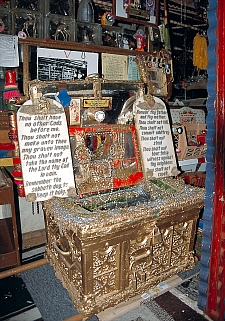 Thou shalt have
no other Gods
before me.
Thou shalt not
make unto thee
any graven image
Thou shalt not
take the name of
the Lord thy God
in vain.
Remember the
sabbath day, to
keep it holy.
Honour thy father
and thy mother.
Thou shalt not kill
Thou shalt not
commit adultery
Thou shalt not
steal
Thou shalt not
bear false
witness against
thy neighbour
Thou shalt not
covet